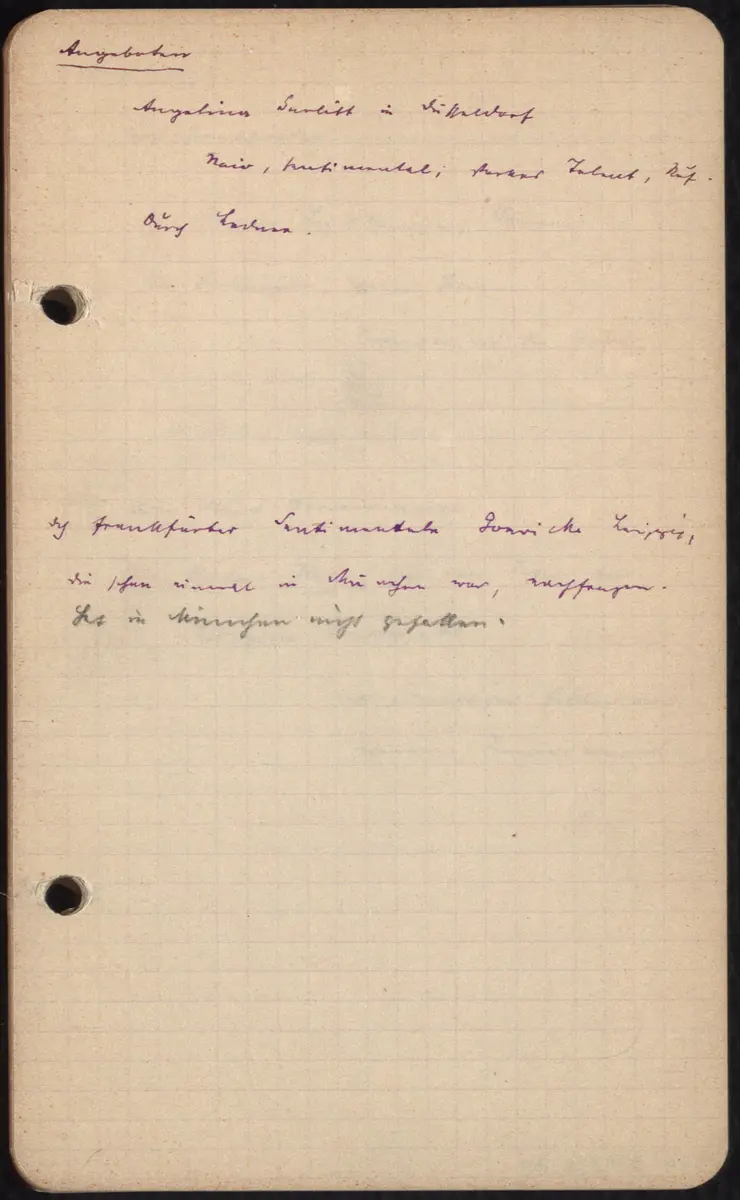 Angeboten
Angelina Gurlitt in Düsseldorf
Naiv, sentimental; starkes Talent, Ruf.
Durch
Frankfurter Sentimentale Leipzig,
die schon einmal in München war, nachfragen.
Hat in München nicht gefallen.